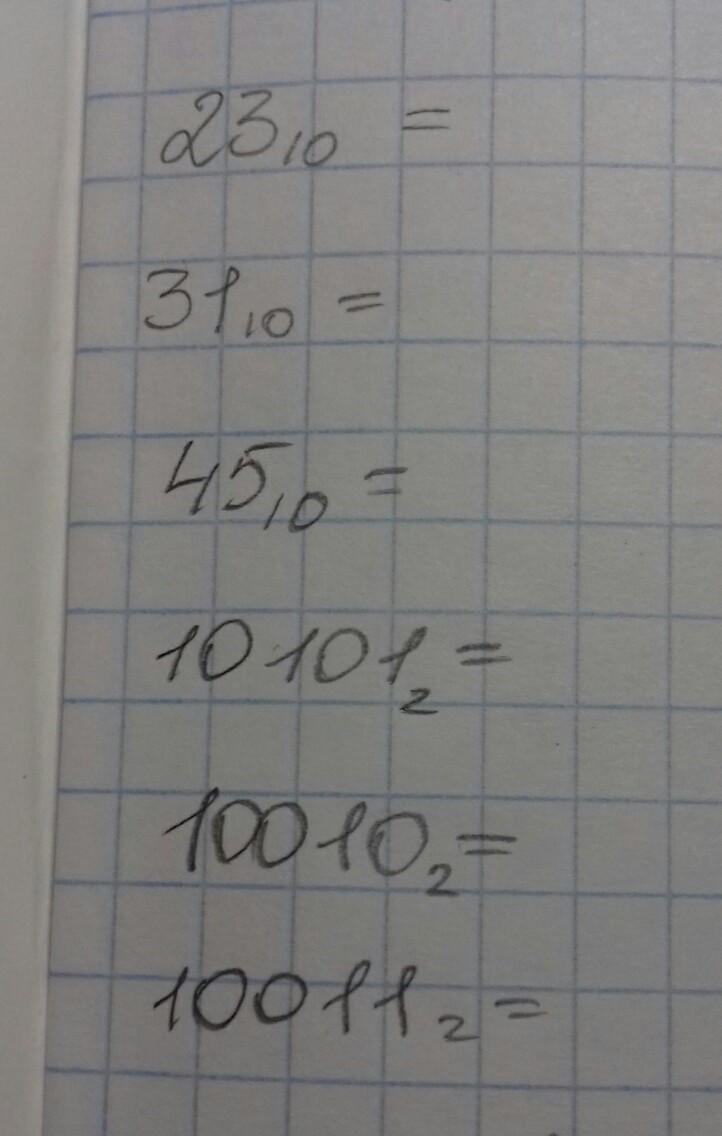 23₁₀ =
31₁₀ =
45₁₀ =
10101₂ =
10010₂ =
10011₂ =